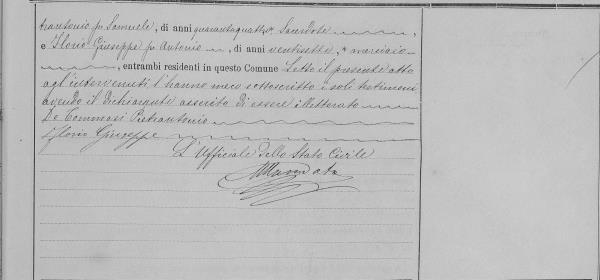 trantonio fu Samuele, di anni quarantaquattro, Sacerdote
e Ilorio Giuseppe fu Antonio, di anni ventisette,
, entrambi residenti in questo Comune Letto il presente atto
agl'intervenuti, l'hanno meco sottoscritto i soli testimoni
avendo il dichiarante asserito di essere illetterato
De Tommasi Pietrantonio
Iflorio Giuseppe
L'Ufficiale dello Stato Civile